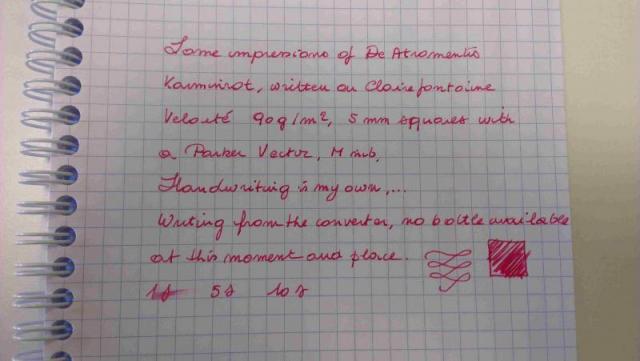 Some impressions of De Atramentis
Karminrot, written on Clairefontaine
Velouté 90g/m², 5 mm squares with
a Parker Vector, M nib.
Handwriting is my own,...
Writing from the converter, no bottle available
at this moment and place.
1s 5s 10s